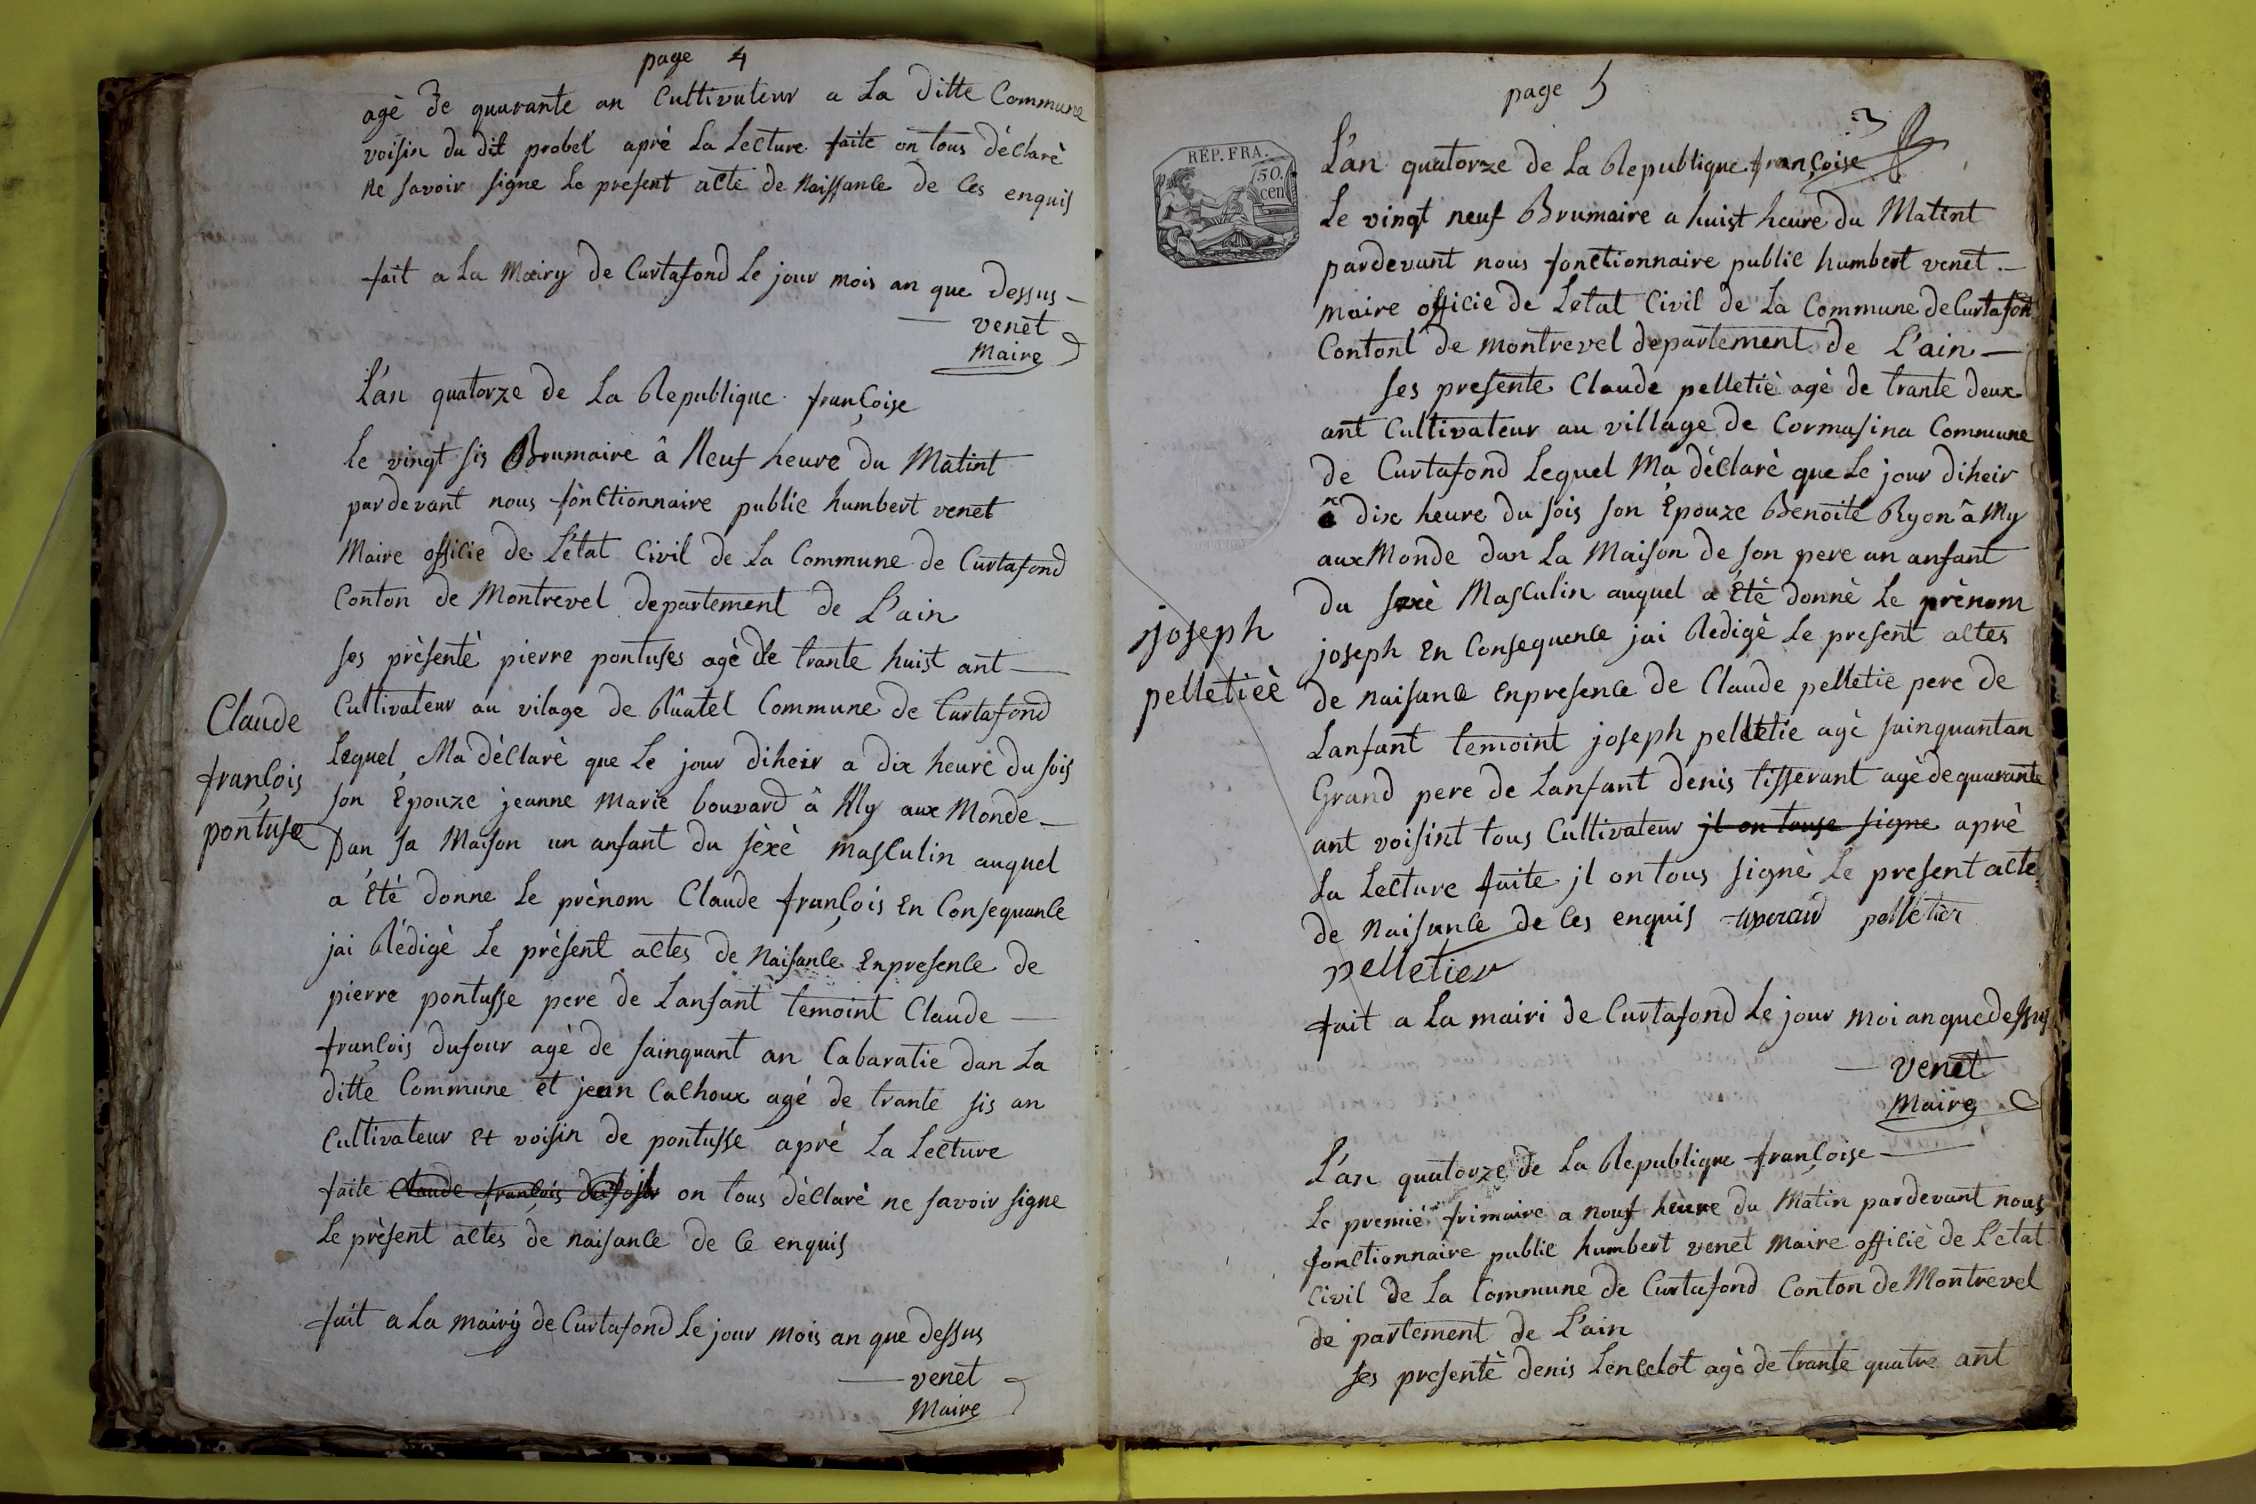 page 4
agè de quarante an Cultivateur a La ditte Commune
voisin du dit probet aprè La Lecture faite on tous dèclarè
ne savoir signe Le present acte de Naissance de Ces enquis
fait a La Mairy de Curtafond Le jour mois an que dessus
venet
Maire
L'an quatorze de La Republique françoise
le vingt sis Brumaire â Neuf heure du Matint
pardevant nous fonctionnaire public humbert venet
Maire officie de L'etat Civil de La Commune de Curtafond
Conton de Montrevel departement de L'ain
ses prèsentè pierre pontuses agè de trante huist ant
Cultivateur au vilage de Commune de Curtafond
Lequel Ma dèclarè que Le jour diheir a dix heure du sois
son Epouze jeanne Marie bouvard â My aux Monde
Dan sa Maison un anfant du sèxè masculin auquel
a Etè donne Le prènom Claude françois En Consequance
jai Rèdigè Le prèsent actes de Naisance Enpresence de
pierre pontusse pere de Lanfant temoint Claude
françois dufour agè de sainquant an Cabaratie dan La
ditte Commune et jean Cachoux agè de trante sis an
Cultivateur et voisin de pontusse aprè La Lecture
faite Claude françois dufour on tous dèclarè ne savoir signe
Le prèsent actes de naisance de Ce enquis
fait a La mairy de Curtafond Le jour mois an que dessus
venet
Maire
Claude
françois
pontuse
page 5
RÉP. FRA.
50.
cen
L'an quatorze de La Republique françoise
Le vingt neuf Brumaire a huist heure du Matint
pardevant nous fonctionnaire public humbert venet
maire officie de Letat Civil de La Commune de Curtafont
Contont de montrevel departement de L'ain
ses presente Claude pelletiè agè de trante deux
ant Cultivateur au village de Cormasina Commune
de Curtafond Lequel Ma dèclarè que Le jour diheir
a dix heure du sois son Epouze Benoite Ryon â My
aux Monde dan La Maison de son pere un anfant
du sexè Masculin auquel a Etè donnè Le prènom
joseph En Consequence jai Redigè Le present actes
de naisance Enpresence de Claude pelletie pere de
Lanfant temoint joseph pelletie agè sainquantan
Grand pere de Lanfant denis tisserant agè de quarante
ant voisint tous Cultivateur jl on touse signe aprè
La Lecture faite jl on tous signè Le present acte
de Naisance de Ces enquis pelletier
pelletier
fait a La mairi de Curtafond Le jour moi an que dessus
venet
Maire
joseph
pelletieè
L'an quatorze de La Republique françoise
Le premiè frimaire a nouf heure du Matin pardevant nous
fonctionnaire public humbert venet Maire officiè de L'etat
Civil de La Commune de Curtafond Conton de Montrevel
de partement de L'ain
ses presentè denis Lencelot agè de trante quatre ant